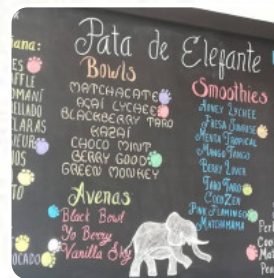 Pata de Elefante
iana:
ES
UFFLE
OMANÍ
ELLADO
CLARAS
Bowls
MATCHACATE
AÇAÍ LYCHEE
BLACKBERRY TARO
KAZAÍ
CHOCO MINT
BERRY GOOD
GREEN MONKEY
Avenas
Black Bowl
Yo Berry
Vanilla Sky
Smoothies
HONEY LYCHEE
FRESA SUNRISE
MENTA TROPICAL
MANGO TANGO
BERRY LOVER
TARO TARO
COCO ZEN
PINK FLAMINGO
MATCHAMAMA